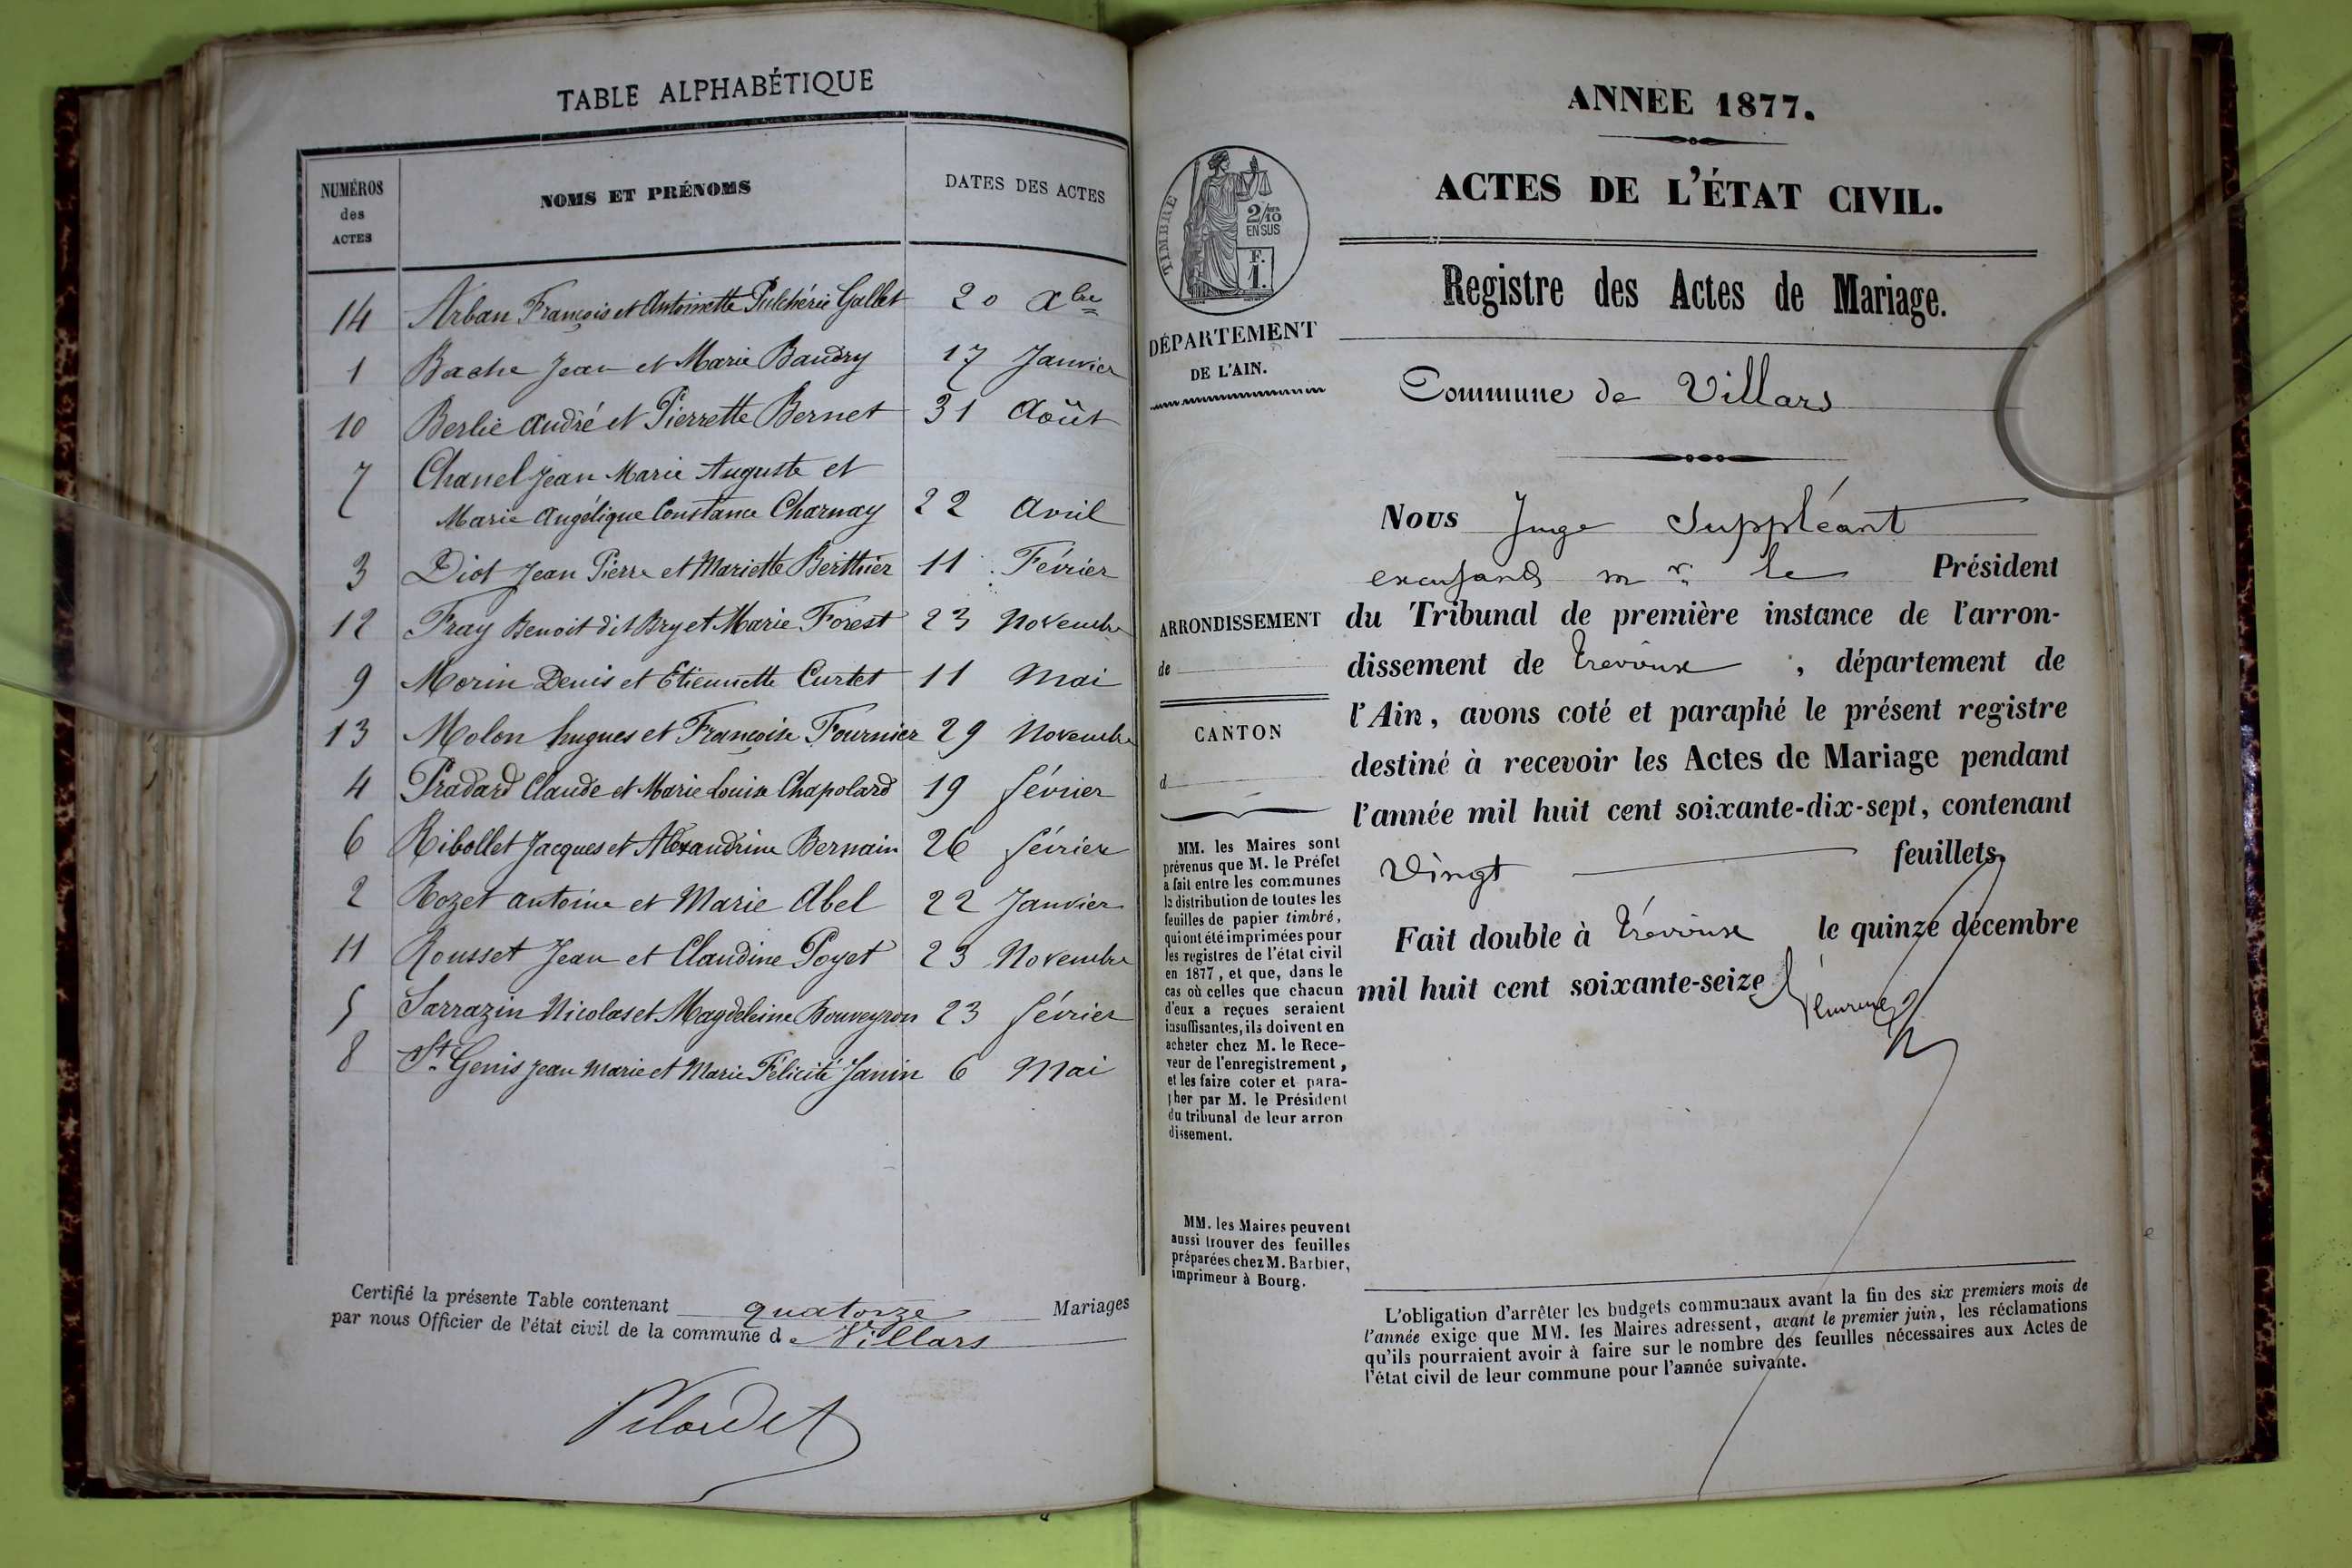 TABLE ALPHABÉTIQUE
NUMÉROS
des
ACTES
NOMS ET PRÉNOMS
DATES DES ACTES
14 Arban François et Antoinette Pulchérie Gallet 20 Xbre
1 Bache Jean et Marie Baudry 17 Janvier
10 Berlie André et Pierrette Bernet 31 Août
7 Chanel Jean Marie Auguste et
Marie Angélique Constance Charnay 22 Avril
3 Diot Jean Pierre et Mariette Berthier 11 Février
12 Fray Benoit dit Bry et Marie Forest 23 Novembre
9 Morin Denis et Etiennette Curtet 11 Mai
13 Molon hugues et Françoise Fournier 29 Novembre
4 Pradard Claude et Marie Louise Chapolard 19 février
6 Ribollet Jacques et Alexandrine Bernain 26 février
2 Rozet antoine et Marie Abel 22 Janvier
11 Rousset Jean et Claudine Poyet 23 Novembre
5 Sarrazin Nicolas et Magdeleine Bouveyron 23 février
8 St Genis Jean Marie et Marie Félicité Janin 6 Mai
Certifié la présente Table contenant quatorze Mariages
par nous Officier de l'état civil de la commune de Villars
ANNEE 1877.
ACTES DE L'ÉTAT CIVIL.
Registre des Actes de Mariage.
TIMBRE
2/10
EN SUS
F.
1.
DÉPARTEMENT
DE L'AIN.
Commune de Villars
Nous Juge Suppléant
excusant mr le Président
du Tribunal de première instance de l'arron-
dissement de Trevoux, département de
l'Ain, avons coté et paraphé le présent registre
destiné à recevoir les Actes de Mariage pendant
l'année mil huit cent soixante-dix-sept, contenant
Vingt feuillets.
Fait double à Trévoux le quinze décembre
mil huit cent soixante-seize
ARRONDISSEMENT
de
CANTON
d
MM. les Maires sont
prévenus que M. le Préfet
a fait entre les communes
la distribution de toutes les
feuilles de papier timbré,
qui ont été imprimées pour
les registres de l'état civil
en 1877, et que, dans le
cas où celles que chacun
d'eux a reçues seraient
insuffisantes, ils doivent en
acheter chez M. le Rece-
veur de l'enregistrement,
et les faire coter et para-
pher par M. le Président
du tribunal de leur arron
dissement.
MM. les Maires peuvent
aussi trouver des feuilles
préparées chez M. Barbier,
imprimeur à Bourg.
L'obligation d'arrêter les budgets communaux avant la fin des six premiers mois de
l'année exige que MM. les Maires adressent, avant le premier juin, les réclamations
qu'ils pourraient avoir à faire sur le nombre des feuilles nécessaires aux Actes de
l'état civil de leur commune pour l'année suivante.